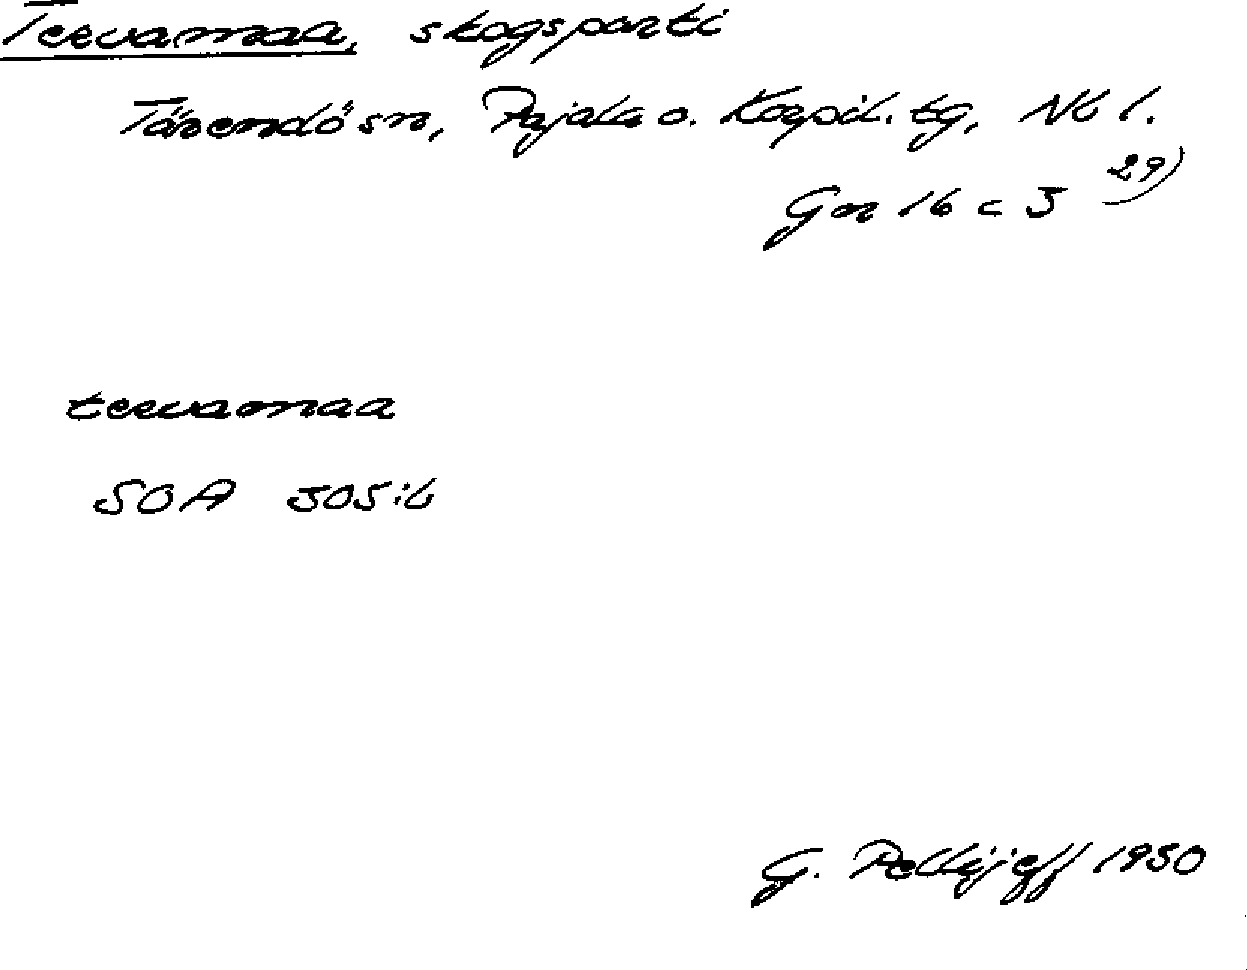 Teevamaa, skogsparti
Tärendö sn, Pajala o. Korpil. tg, Nb l.
Gn 16 c 3 29)
teevamaa
SOA 305:6
G. Pellijeff 1950